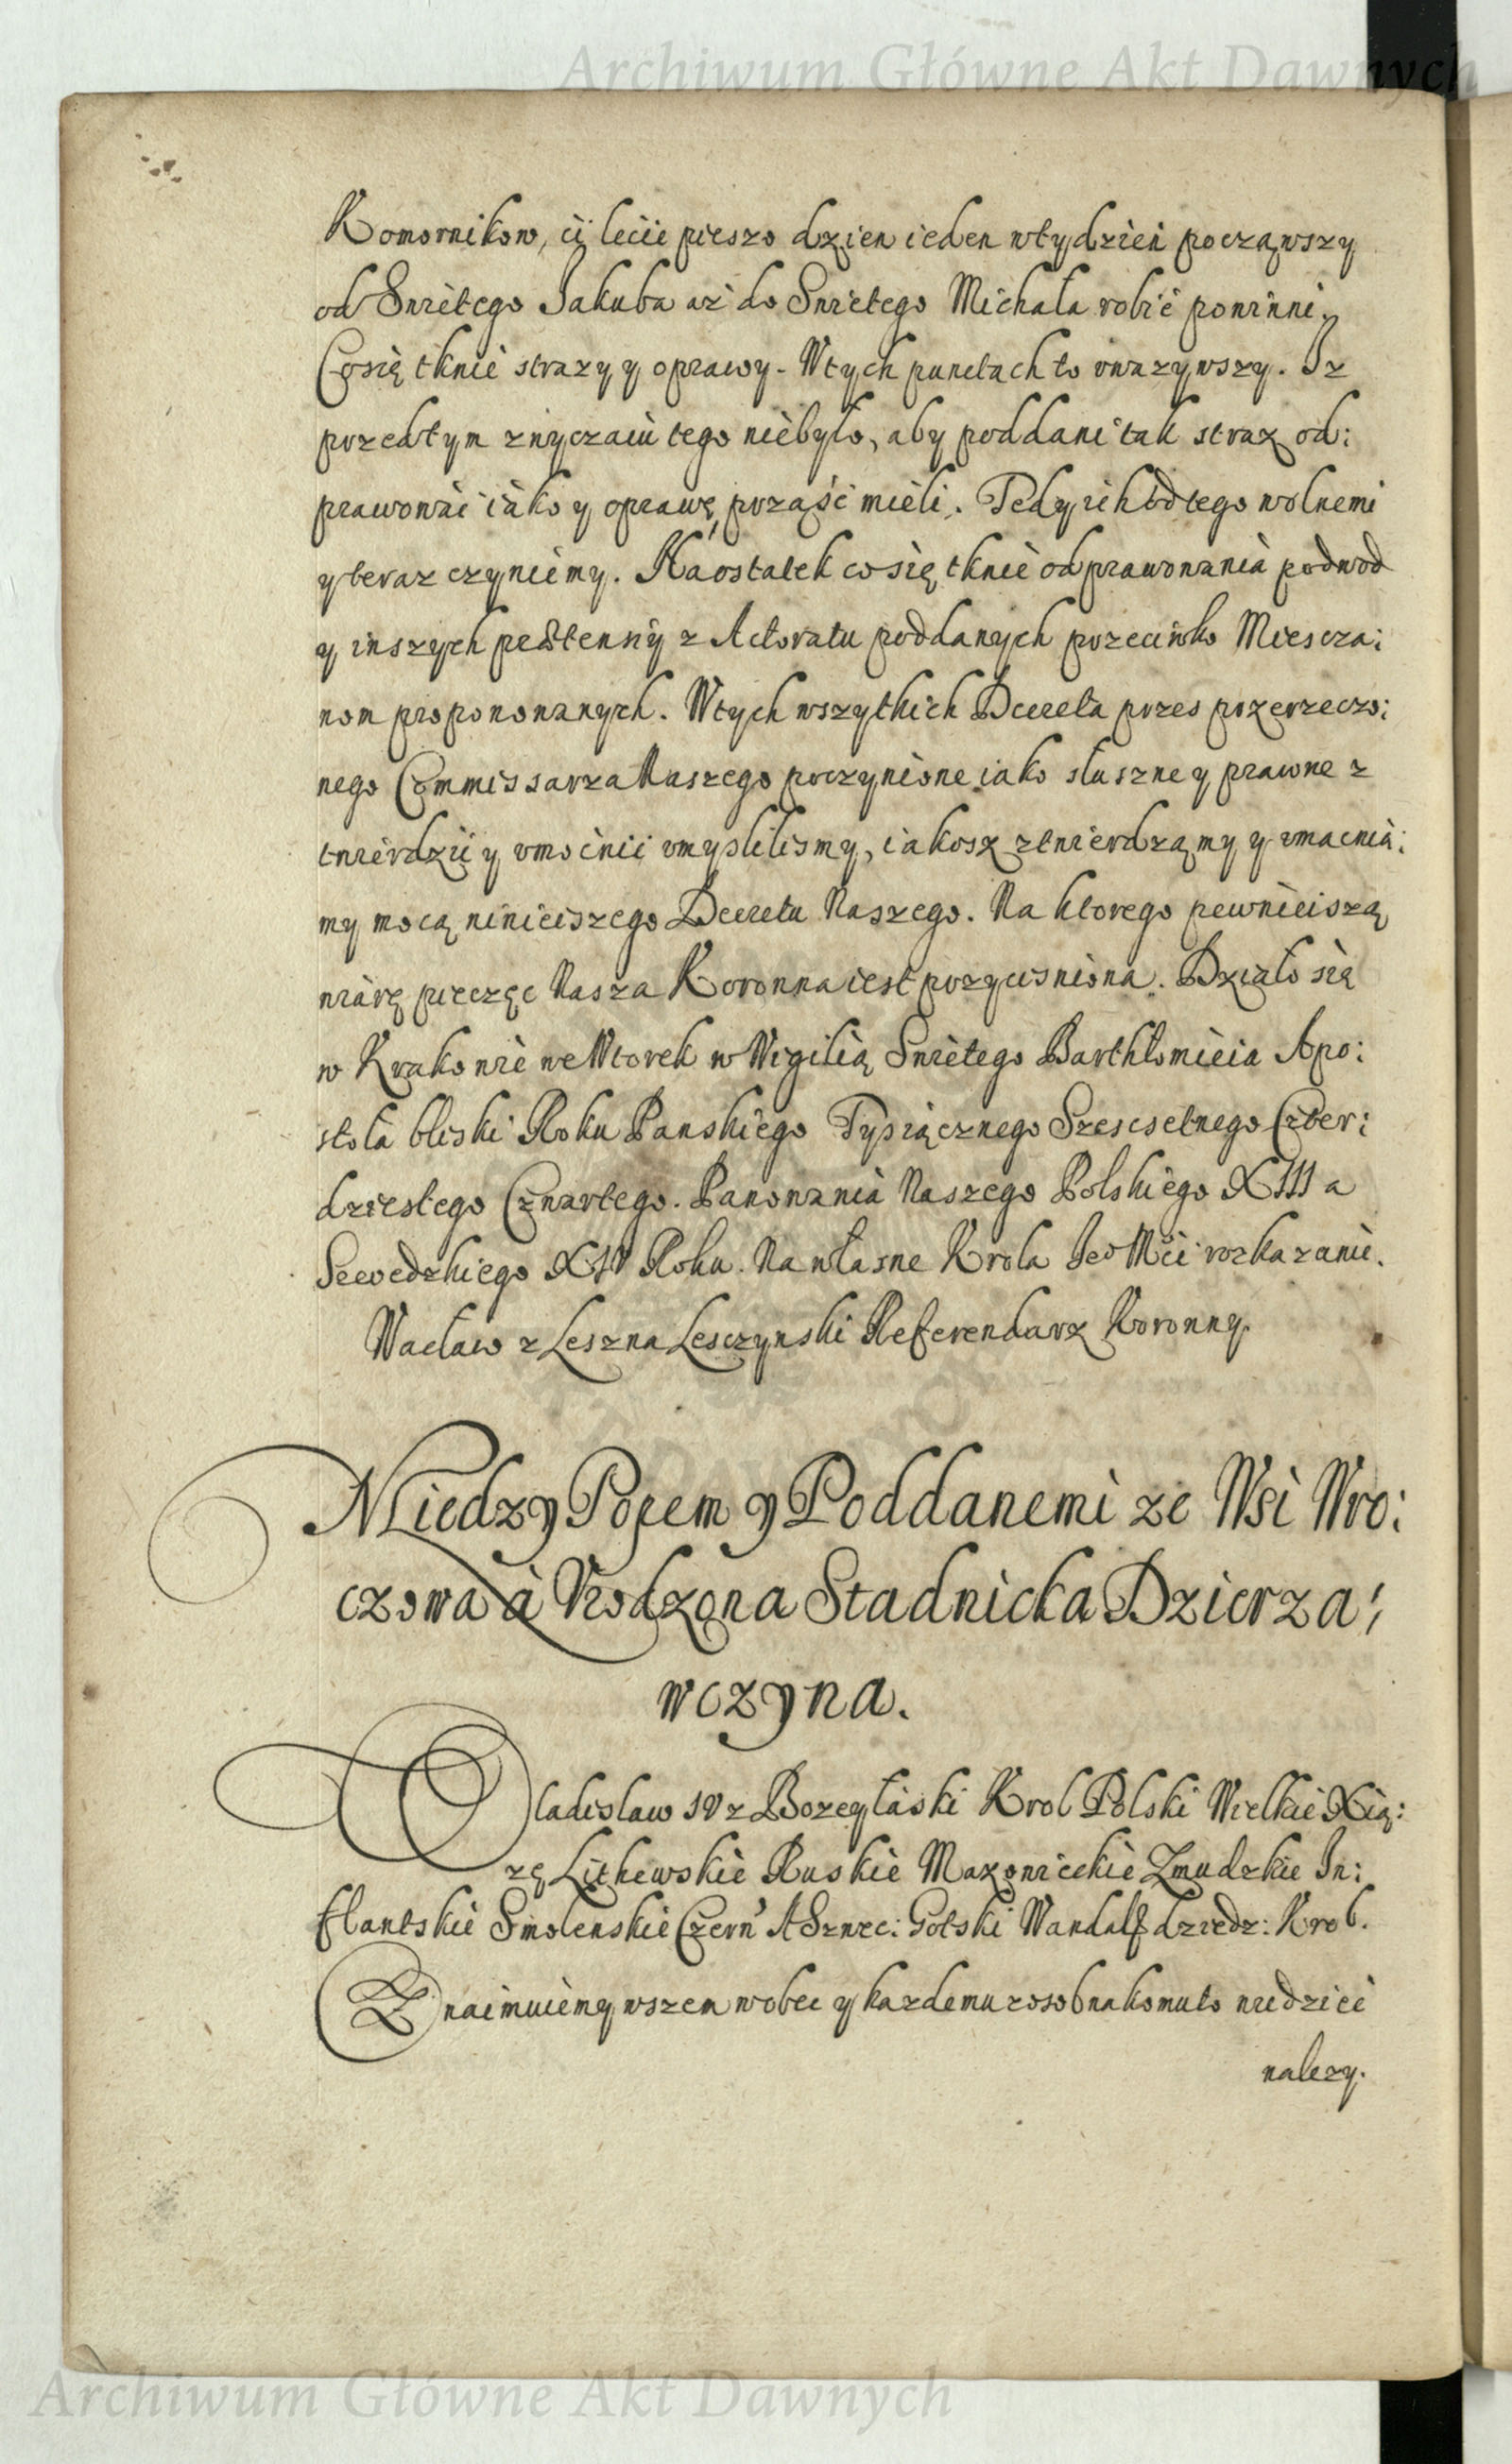 Archiwum Główne Akt Dawnych
Komornikow, ci lecie pieszo dzien ieden w tydzień począwszy
od Swiętego Jakuba aż do Swiętego Michała robić powinni.
Co się tknie strazy y oprawy. W tych punctach to uwazywszy. Iz
przedtym zwyczaiu tego niebyło, aby poddani tak straz od:
prawować iako y oprawę prząść mieli. Tedy ich od tego wolnemi
y teraz czyniemy. Na ostatek co się tknie odprawowania podwod
y inszych pretensiy z Actoratu poddanych przeciwko Miescza:
nom proponowanych. W tych wszytkich Decreta przes przerzeczo:
nego Commissarza Naszego poczynione iako słuszne y prawne z
twierdzić y umocnić umyslilismy, iakosz ztwierdzamy y umacnia:
my mocą ninieiszego Decretu Naszego. Na ktorego pewnieiszą
wiarę pieczęc Nasza Koronna iest przycisniona. Działo się
w Krakowie we Wtorek w Wigilią Swiętego Barthłomieia Apo:
stoła bliski Roku Panskiego Tysiącznego Szescsetnego Czter:
dziestego Czwartego. Panowania Naszego Polskiego XIII a
Szwedzkiego XIV Roku. Na własne Krola Jeo Mci rozkazanie.
Wacław z Leszna Lesczynski Referendarz Koronny.
Miedzy Popem y Poddanemi ze Wsi Wro:
czowa a Vrodzona Stadnicka Dzierza:
wczyna.
Vladislaw IV z Bozey łaski Krol Polski Wielkie Xią:
zę Lithewskie Ruskie Mazowieckie Zmudzkie In:
flantskie Smolenskie Czern' A Szwec: Gotski Wandalf dziedz: Krol.
Znaimuiemy wszem wobec y kazdemu zosobna komu to wiedzieć
nalezy.
Archiwum Główne Akt Dawnych